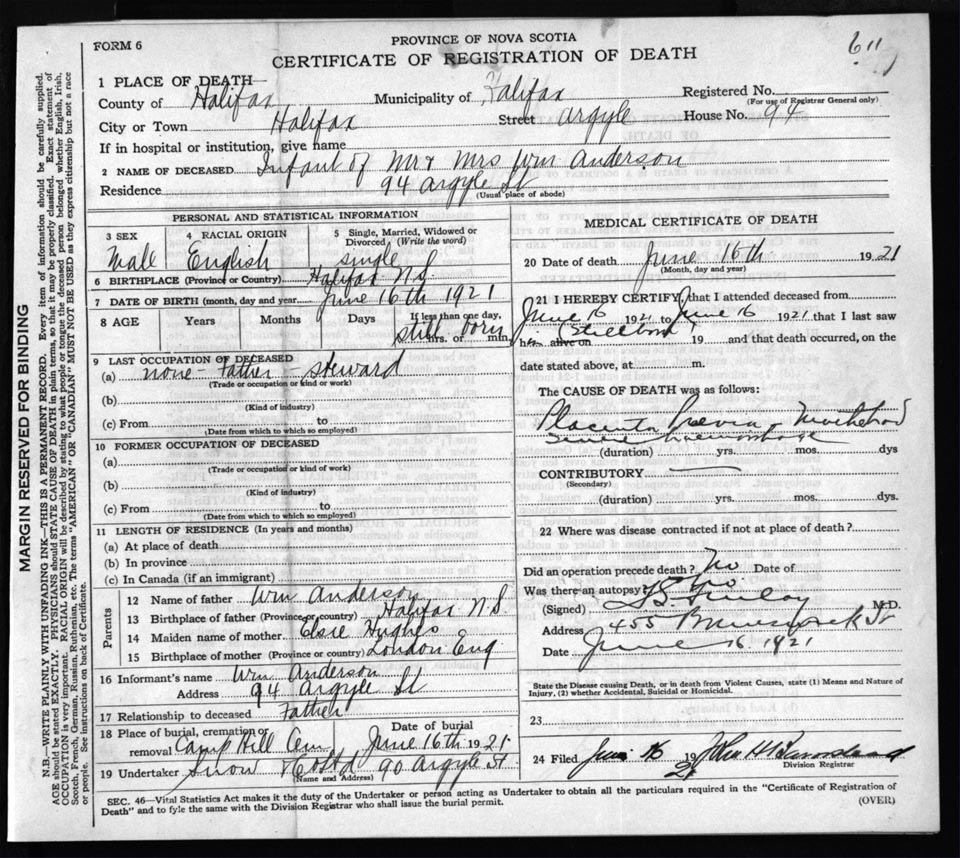 FORM 6
PROVINCE OF NOVA SCOTIA
CERTIFICATE OF REGISTRATION OF DEATH
611
1 PLACE OF DEATH
County of Halifax Municipality of Halifax Registered No.
(For use of Registrar General only)
City or Town Halifax Street Argyle House No. 94
If in hospital or institution, give name
2 NAME OF DECEASED Infant of Mr & Mrs Wm Anderson
Residence 94 Argyle St
(Usual place of abode)
PERSONAL AND STATISTICAL INFORMATION
3 SEX Male 4 RACIAL ORIGIN English 5 Single, Married, Widowed or Divorced (Write the word) single
6 BIRTHPLACE (Province or Country) Halifax N.S.
7 DATE OF BIRTH (month, day and year) June 16th 1921
8 AGE Years Months Days If less than one day, hrs. or min. still born
9 LAST OCCUPATION OF DECEASED
(a) none - Father - steward
(Trade or occupation or kind or work)
(b)
(Kind of industry)
(c) From to
(Date from which to which so employed)
10 FORMER OCCUPATION OF DECEASED
(a)
(Trade or occupation or kind of work)
(b)
(Kind of industry)
(c) From to
(Date from which to which so employed)
11 LENGTH OF RESIDENCE (In years and months)
(a) At place of death
(b) In province
(c) In Canada (if an immigrant)
Parents
12 Name of father Wm Anderson
13 Birthplace of father (Province or country) Halifax N.S.
14 Maiden name of mother Elsie Hughes
15 Birthplace of mother (Province or country) London Eng
16 Informant's name Wm Anderson
Address 94 Argyle St
17 Relationship to deceased Father
18 Place of burial, cremation or removal Camp Hill Date of burial June 16th 1921
19 Undertaker Snow & Co Ltd 90 Argyle St.
(Name and Address)
MEDICAL CERTIFICATE OF DEATH
20 Date of death June 16th 1921
(Month, day and year)
21 I HEREBY CERTIFY, that I attended deceased from
June 16 1921 to June 16 1921 that I last saw
h alive on (Stillborn) 19 and that death occurred, on the
date stated above, at m.
The CAUSE OF DEATH was as follows:
Placenta Previa
haemorrhage
(duration) yrs. mos. dys
CONTRIBUTORY
(Secondary)
(duration) yrs. mos. dys.
22 Where was disease contracted if not at place of death?
Did an operation precede death? No Date of
Was there an autopsy? No
(Signed) Finlay M.D.
Address 455 Brunswick St
Date June 16. 1921
State the Disease causing Death, or in death from Violent Causes, state (1) Means and Nature of
Injury, (2) whether Accidental, Suicidal or Homicidal.
23
24 Filed June 16 1921 John H
Division Registrar
SEC. 46—Vital Statistics Act makes it the duty of the Undertaker or person acting as Undertaker to obtain all the particulars required in the "Certificate of Registration of
Death" and to fyle the same with the Division Registrar who shall issue the burial permit.
(OVER)
MARGIN RESERVED FOR BINDING
N.B.—WRITE PLAINLY WITH UNFADING INK—THIS IS A PERMANENT RECORD. Every item of information should be carefully supplied.
AGE should be stated EXACTLY. PHYSICIANS should STATE CAUSE OF DEATH in plain terms, so that it may be properly classified. Exact statement of
OCCUPATION is very important. RACIAL ORIGIN will be described by stating to what people or tongue the deceased person belonged whether English, Irish,
Scotch, French, German, Russian, Ruthenian, etc. The terms "AMERICAN" OR "CANADIAN" MUST NOT BE USED as they express citizenship but not a race
or people. See instructions on back of Certificate.